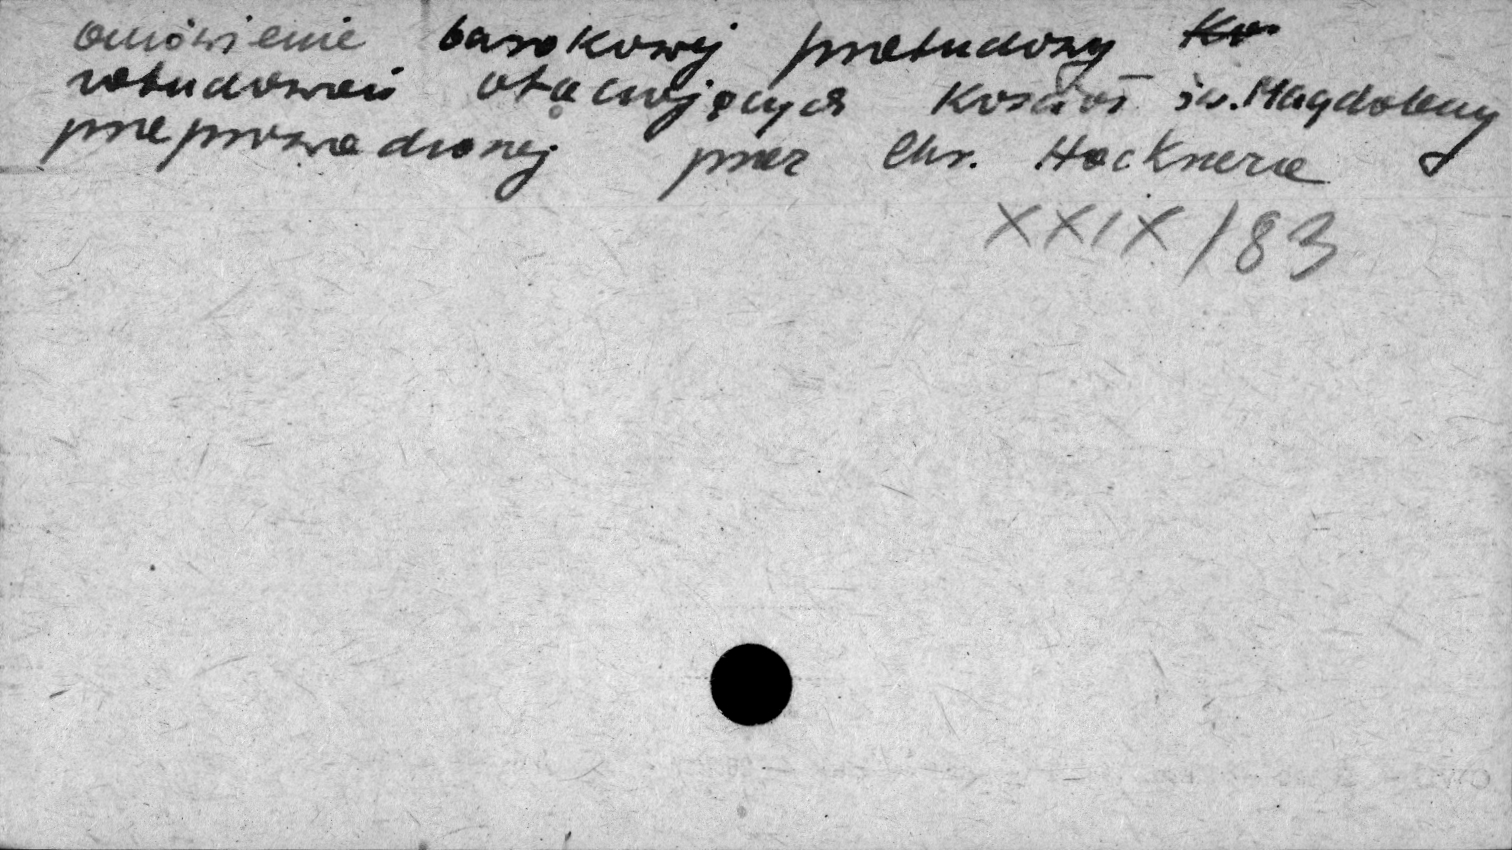 omówienie barokowej przebudowy Ko
zabudowań otaczających kościół św. Magdaleny
przeprowadzonej przez Chr. Hacknera
XXIX/83